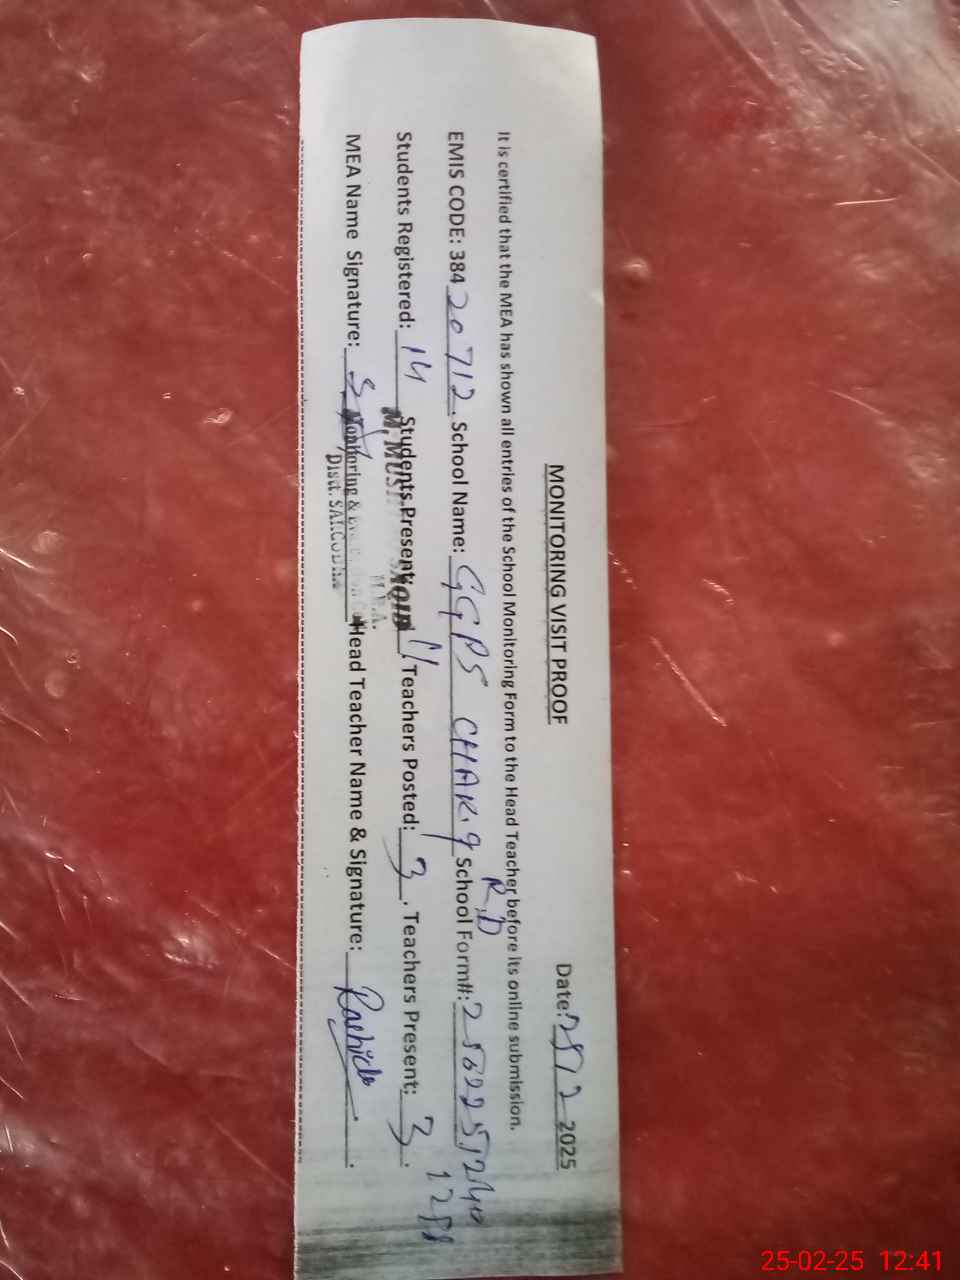 MONITORING VISIT PROOF
Date: 25/2 2025
It is certified that the MEA has shown all entries of the School Monitoring Form to the Head Teacher before its online submission.
R.D
EMIS CODE: 384 20712. School Name: GGPS CHAK.9 School Form#:
Students Registered: 14 Students Present: 11 Teachers Posted: 3. Teachers Present: 3.
M.E.A.
MEA Name Signature: Head Teacher Name & Signature: Rashida.
Monitoring &
Distt. SARGODHA
25-02-25 12:41